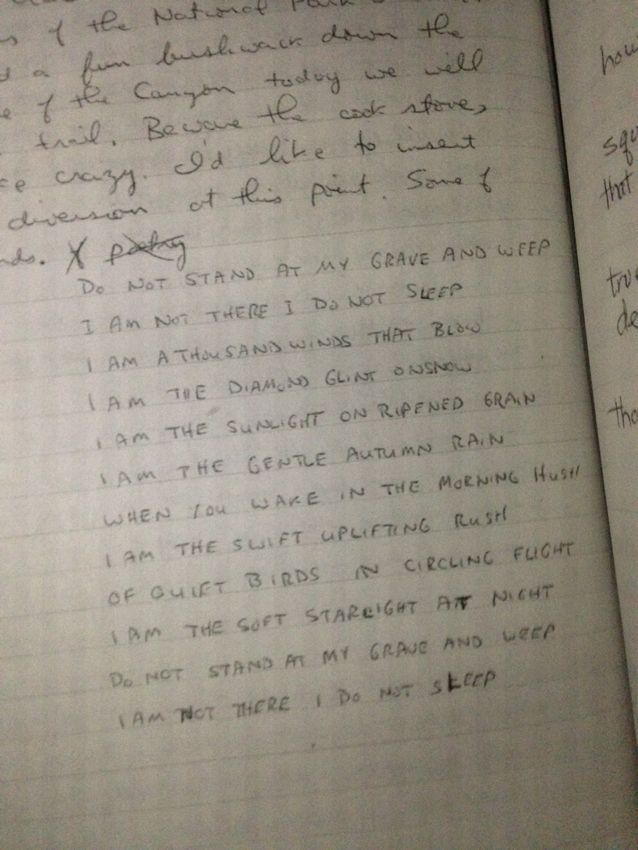 of the National Park
a fun bushwack down the
of the Canyon today we will
trail. Beware the cook stove,
crazy. I'd like to insert
diversion at this point. Some of
nds. X poetry
DO NOT STAND AT MY GRAVE AND WEEP
I AM NOT THERE I DO NOT SLEEP
I AM A THOUSAND WINDS THAT BLOW
I AM THE DIAMOND GLINT ON SNOW
I AM THE SUNLIGHT ON RIPENED GRAIN
I AM THE GENTLE AUTUMN RAIN
WHEN YOU WAKE IN THE MORNING HUSH
I AM THE SWIFT UPLIFTING RUSH
OF QUIET BIRDS IN CIRCLING FLIGHT
I AM THE SOFT STARLIGHT AT NIGHT
DO NOT STAND AT MY GRAVE AND WEEP
I AM NOT THERE I DO NOT SLEEP
how
squ
that
tru
de
tha